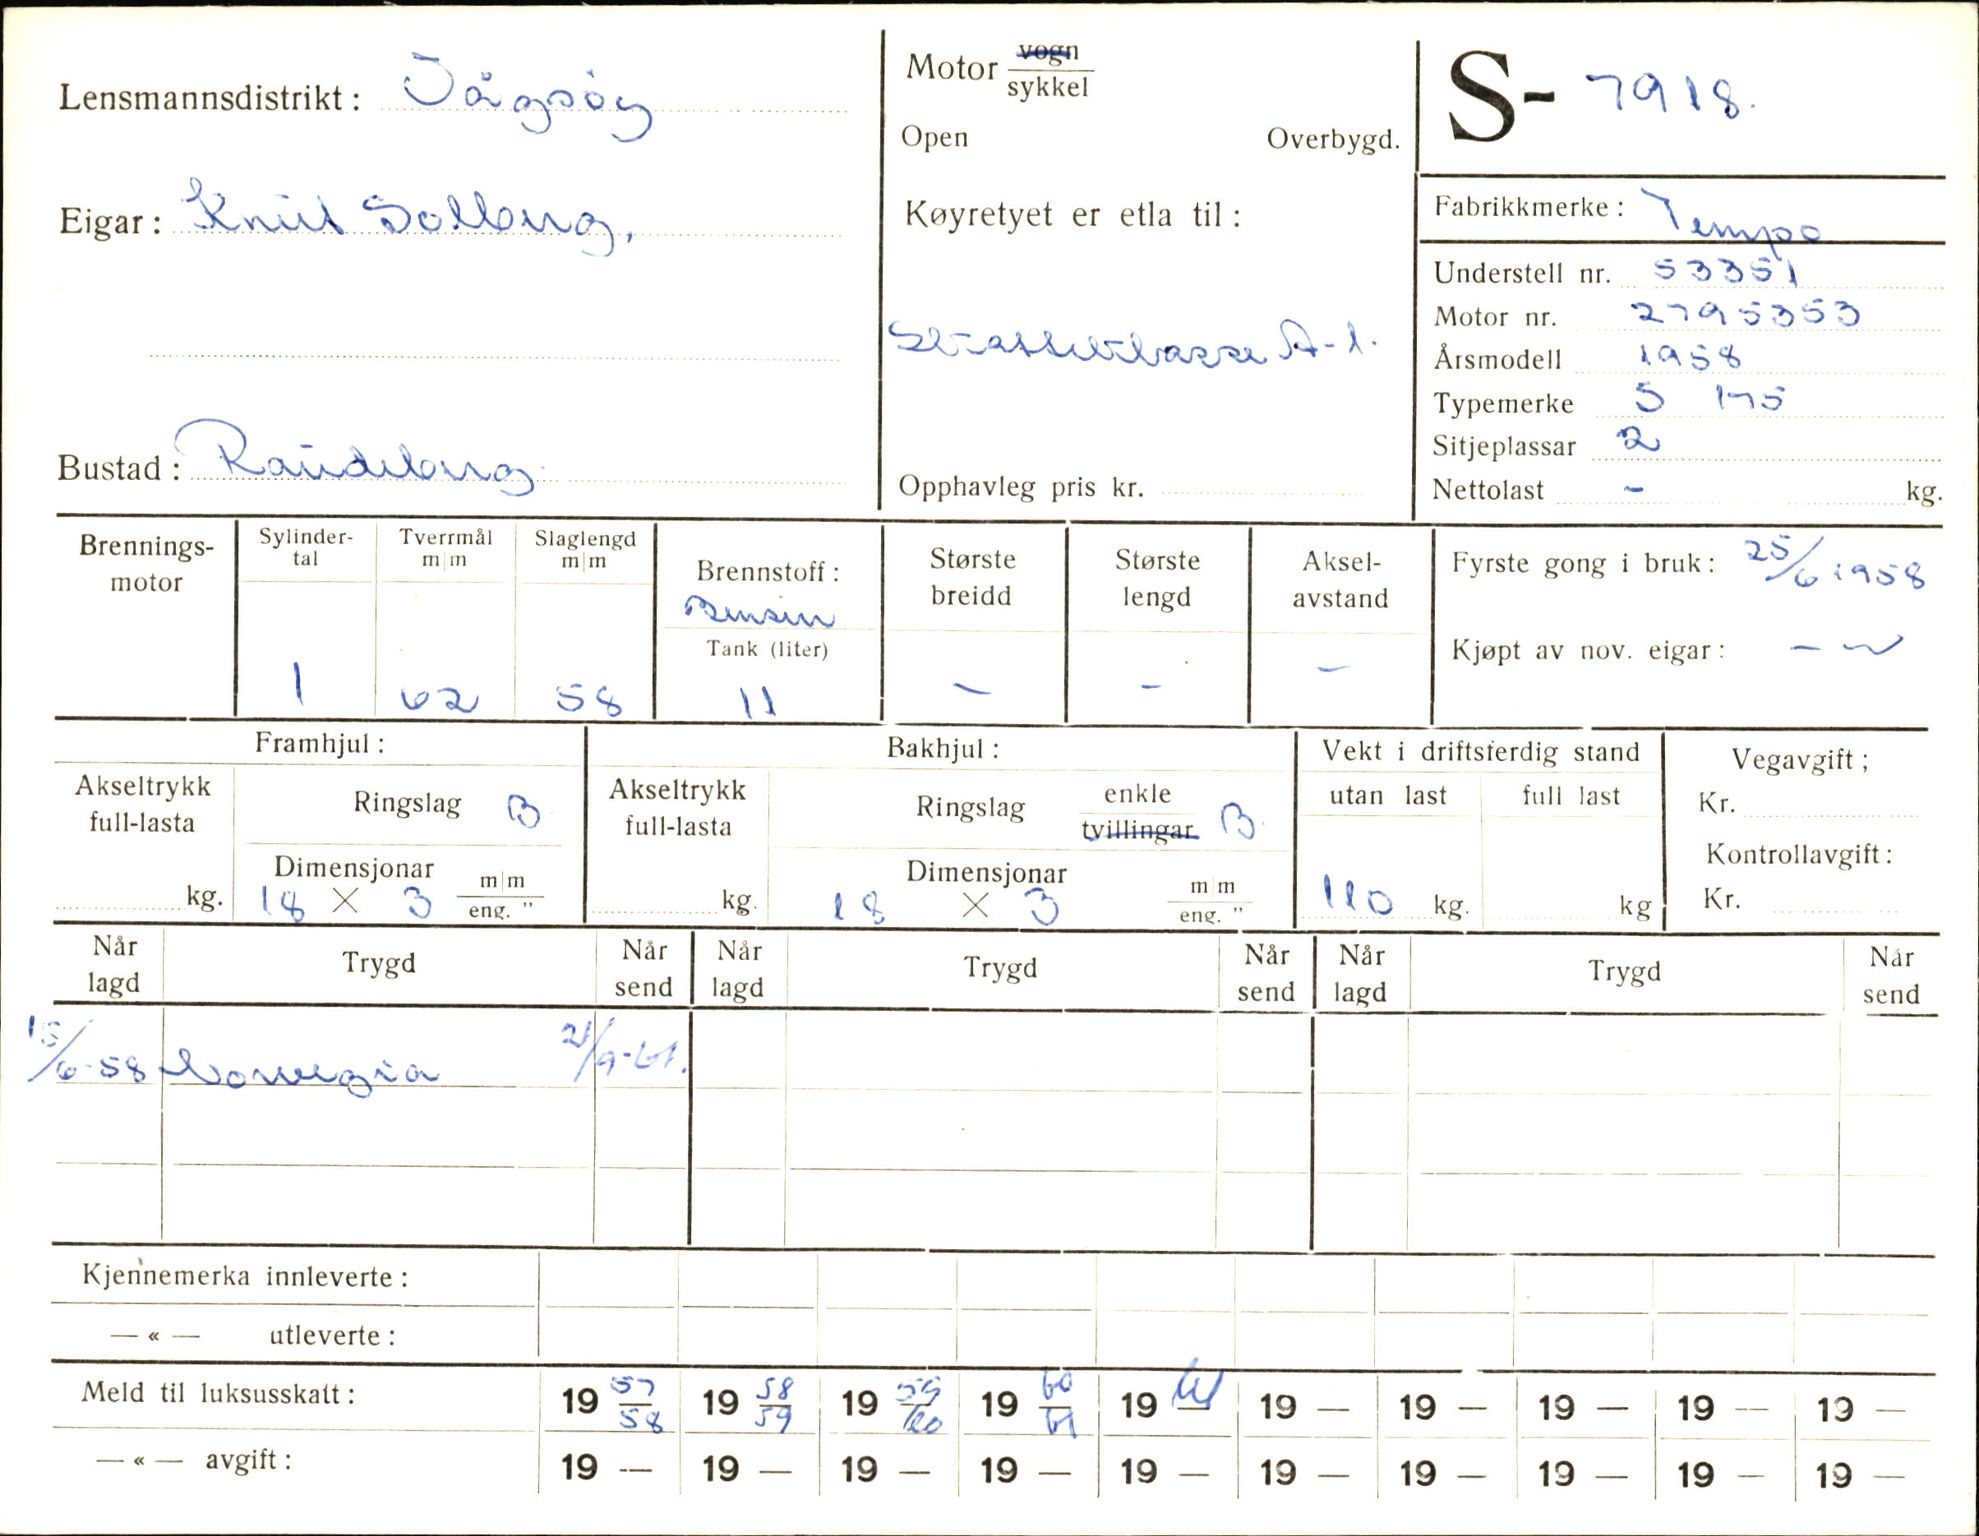 Lensmannsdistrikt: Vågsøy
Eigar: Knut Solberg,
Bustad: Raudeberg
Motor vogn
sykkel
Open Overbygd.
Køyretyet er etla til:
Skatteklasse A-1.
Opphavleg pris kr.
S- 7918.
Fabrikkmerke: Tempo
Understell nr. 53351
Motor nr. 2795353
Årsmodell 1958
Typemerke S 175
Sitjeplassar 2
Nettolast – kg.
Brennings-
motor
Sylinder-
tal
1
Tverrmål
m|m
62
Slaglengd
m|m
58
Brennstoff:
Bensin
Tank (liter)
11
Største
breidd
–
Største
lengd
–
Aksel-
avstand
–
Fyrste gong i bruk: 25/6 1958
Kjøpt av nov. eigar: – 〃
Framhjul:
Akseltrykk
full-lasta
kg.
Ringslag B
Dimensjonar
18 × 3 m|m
eng. "
Bakhjul:
Akseltrykk
full-lasta
kg.
Ringslag enkle
tvillingar B.
Dimensjonar
18 × 3 m|m
eng. "
Vekt i driftsferdig stand
utan last full last
110 kg. kg
Vegavgift;
Kr.
Kontrollavgift:
Kr.
Når
lagd Trygd Når
send Når
lagd Trygd Når
send Når
lagd Trygd Når
send
15/6-58 Norvegia 21/9-61.
Kjennemerka innleverte:
— « — utleverte:
Meld til luksusskatt: 19 57/58 19 58/59 19 59/60 19 60/61 19 61 19 — 19 — 19 — 19 — 19 —
— « — avgift: 19 — 19 — 19 — 19 — 19 — 19 — 19 — 19 — 19 — 19 —